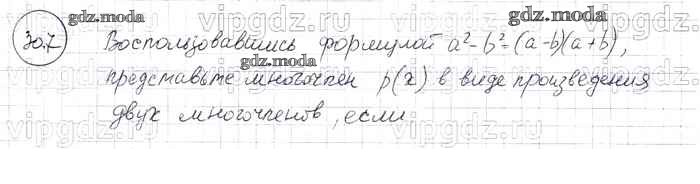 gdz.moda
30.7 Воспользовавшись формулой a² - b² = (a-b)(a+b),
gdz.moda gdz.moda
представьте многочлен p(x) в виде произведения
двух многочленов, если
vipgdz.ru vipgdz.ru vipgdz.ru vipgdz.ru